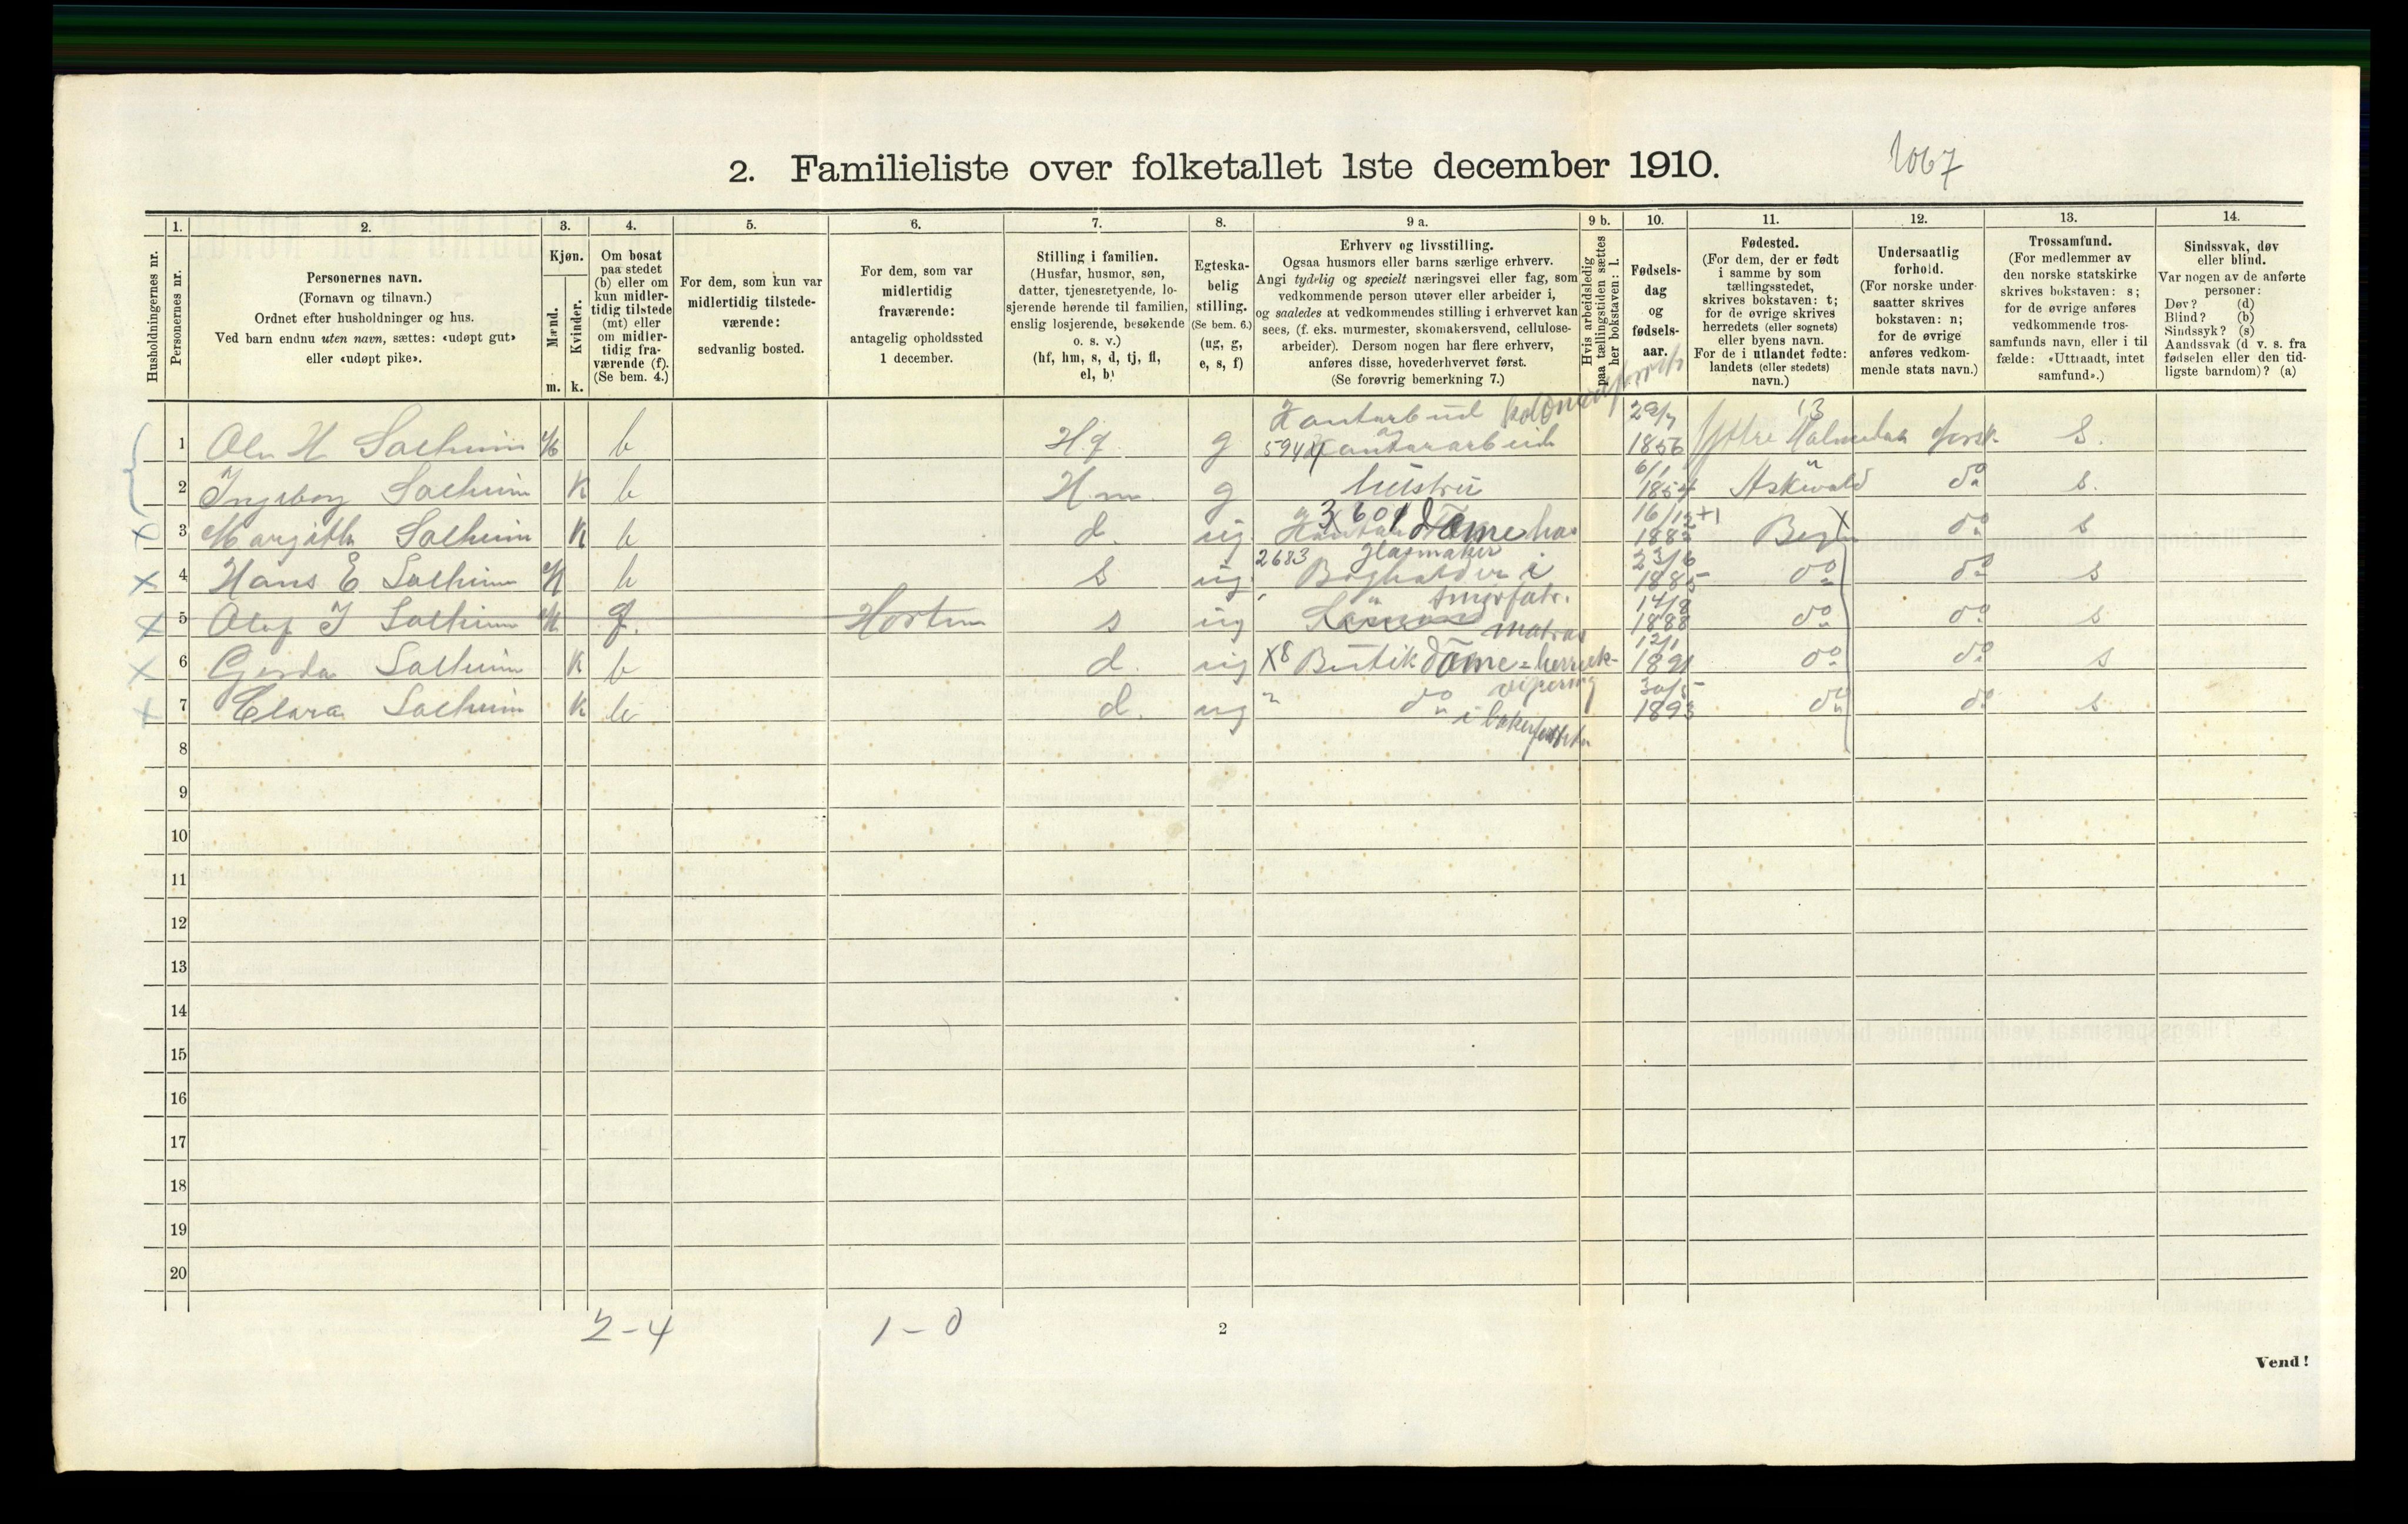 2. Familieliste over folketallet 1ste december 1910.
1067
Husholdningernes nr.
1. Personernes nr.
2. Personernes navn.
(Fornavn og tilnavn.)
Ordnet efter husholdninger og hus.
Ved barn endnu uten navn, sættes: «udøpt gut»
eller «udøpt pike».
3. Kjøn.
Mænd. m.
Kvinder. k.
4. Om bosat
paa stedet
(b) eller om
kun midler-
tidig tilstede
(mt) eller
om midler-
tidig fra-
værende (f).
(Se bem. 4.)
5. For dem, som kun var
midlertidig tilstede-
værende:
sedvanlig bosted.
6. For dem, som var
midlertidig
fraværende:
antagelig opholdssted
1 december.
7. Stilling i familien.
(Husfar, husmor, søn,
datter, tjenestetyende, lo-
sjerende hørende til familien,
enslig losjerende, besøkende
o. s. v.)
(hf, hm, s, d, tj, fl,
el, b)
8. Egteska-
belig
stilling.
(Se bem. 6.)
(ug, g,
e, s, f)
9 a. Erhverv og livsstilling.
Ogsaa husmors eller barns særlige erhverv.
Angi tydelig og specielt næringsvei eller fag, som
vedkommende person utøver eller arbeider i,
og saaledes at vedkommendes stilling i erhvervet kan
sees, (f. eks. murmester, skomakersvend, cellulose-
arbeider). Dersom nogen har flere erhverv,
anføres disse, hovederhvervet først.
(Se forøvrig bemerkning 7.)
9 b. Hvis arbeidsledig
paa tællingstiden sættes
her bokstaven: l.
10. Fødsels-
dag
og
fødsels-
aar.
11. Fødested.
(For dem, der er født
i samme by som
tællingsstedet,
skrives bokstaven: t;
for de øvrige skrives
herredets (eller sognets)
eller byens navn.
For de i utlandet fødte:
landets (eller stedets)
navn.)
12. Undersaatlig
forhold.
(For norske under-
saatter skrives
bokstaven: n;
for de øvrige
anføres vedkom-
mende stats navn.)
13. Trossamfund.
(For medlemmer av
den norske statskirke
skrives bokstaven: s;
for de øvrige anføres
vedkommende tros-
samfunds navn, eller i til
fælde: «Uttraadt, intet
samfund».)
14. Sindssvak, døv
eller blind.
Var nogen av de anførte
personer:
Døv? (d)
Blind? (b)
Sindssyk? (s)
Aandssvak (d. v. s. fra
fødselen eller den tid-
ligste barndom)? (a)
1 Ole H Solheim M b Hf g 5944 29/7 1856 Ytre Holmedal norsk S.
2 Ingeborg Solheim K b Hm g hustru 6/1 1854 Askevold do s.
3 Margithe Solheim K b d. ug. 3601 Dame hos glasmaker 16/12 1882 Bergen do s
4 Hans E Solheim M b s ug. 2683 Bogholder i smørfabr. 23/6 1885 do do s
5 Olaf J Solheim M f. Horten s ug matros 14/8 1888 do do s
6 Gerda Solheim K b d. ug X8 Butikdame = herreek-
vipering 12/1 1891 do do s
7 Clara Solheim K b d. ug " do i bakerforretn 30/5 1893 do do s
8
9
10
11
12
13
14
15
16
17
18
19
20
2-4 1-0
2
Vend!